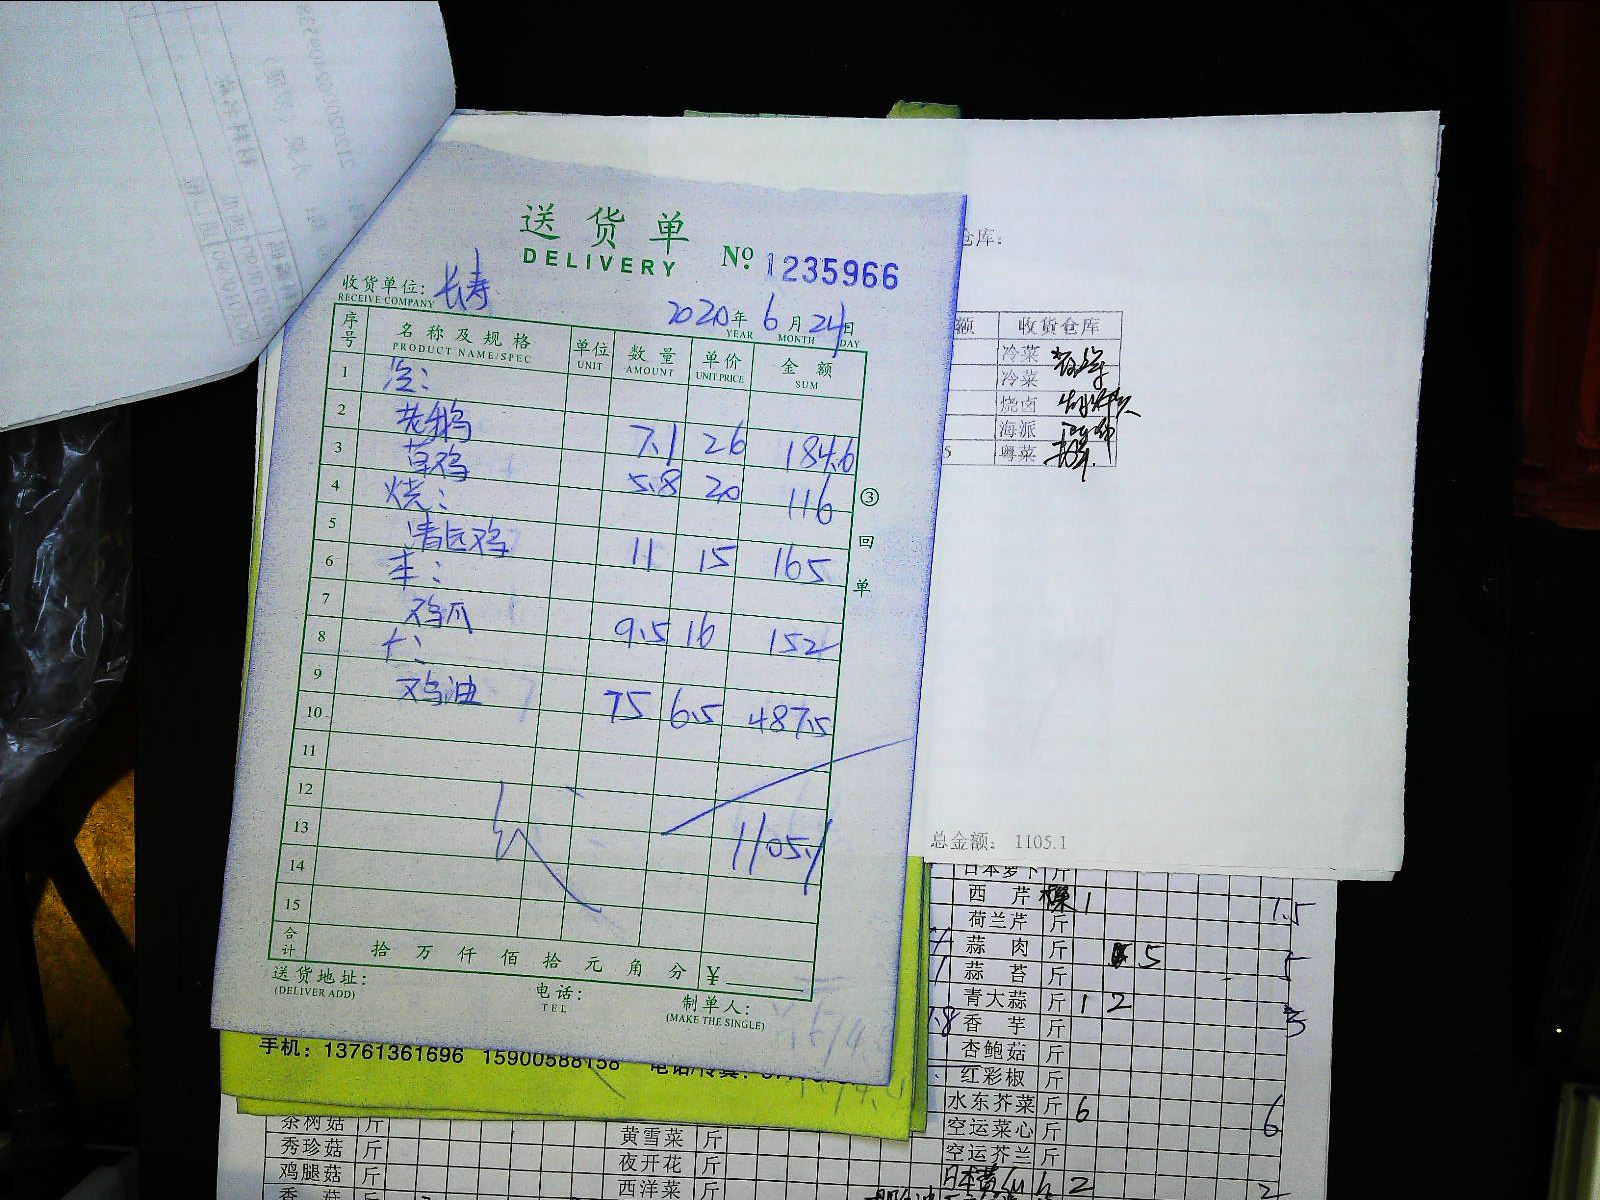 送货单
DELIVERY
No. 1235966
收货单位: 长寿
RECEIVE COMPANY
2020年 6月 24日
YEAR MONTH DAY
序号 名称及规格 单位 数量 单价 金额
PRODUCT NAME/SPEC UNIT AMOUNT UNIT PRICE SUM
1 冷:
2 老鹅 7.1 26 184.6
3 草鸡 5.8 20 116
4 烧:
5 清远鸡 11 15 165
6
7 鸡爪 9.5 16 152
8 十:
9 鸡油 75 6.5 487.5
10
11
12
13 1105.1
14
15
合计 拾 万 仟 佰 拾 元 角 分 ¥
送货地址:
(DELIVER ADD)
电话:
TEL
制单人:
(MAKE THE SINGLE)
③ 回单
手机: 13761361696 15900588158
仓库:
额 收货仓库
冷菜
冷菜
烧卤
海派
5 粤菜
总金额: 1105.1
日本萝卜 斤
西芹 棵 1 1.5
荷兰芹 斤
蒜肉 斤 5 5
蒜苔 斤
青大蒜 斤 1 2 3
香芋 斤
杏鲍菇 斤
红彩椒 斤
水东芥菜 斤 6 6
空运菜心 斤
空运芥兰 斤
茶树菇 斤
秀珍菇 斤
鸡腿菇 斤
香菇
黄雪菜 斤
夜开花 斤
西洋菜 斤